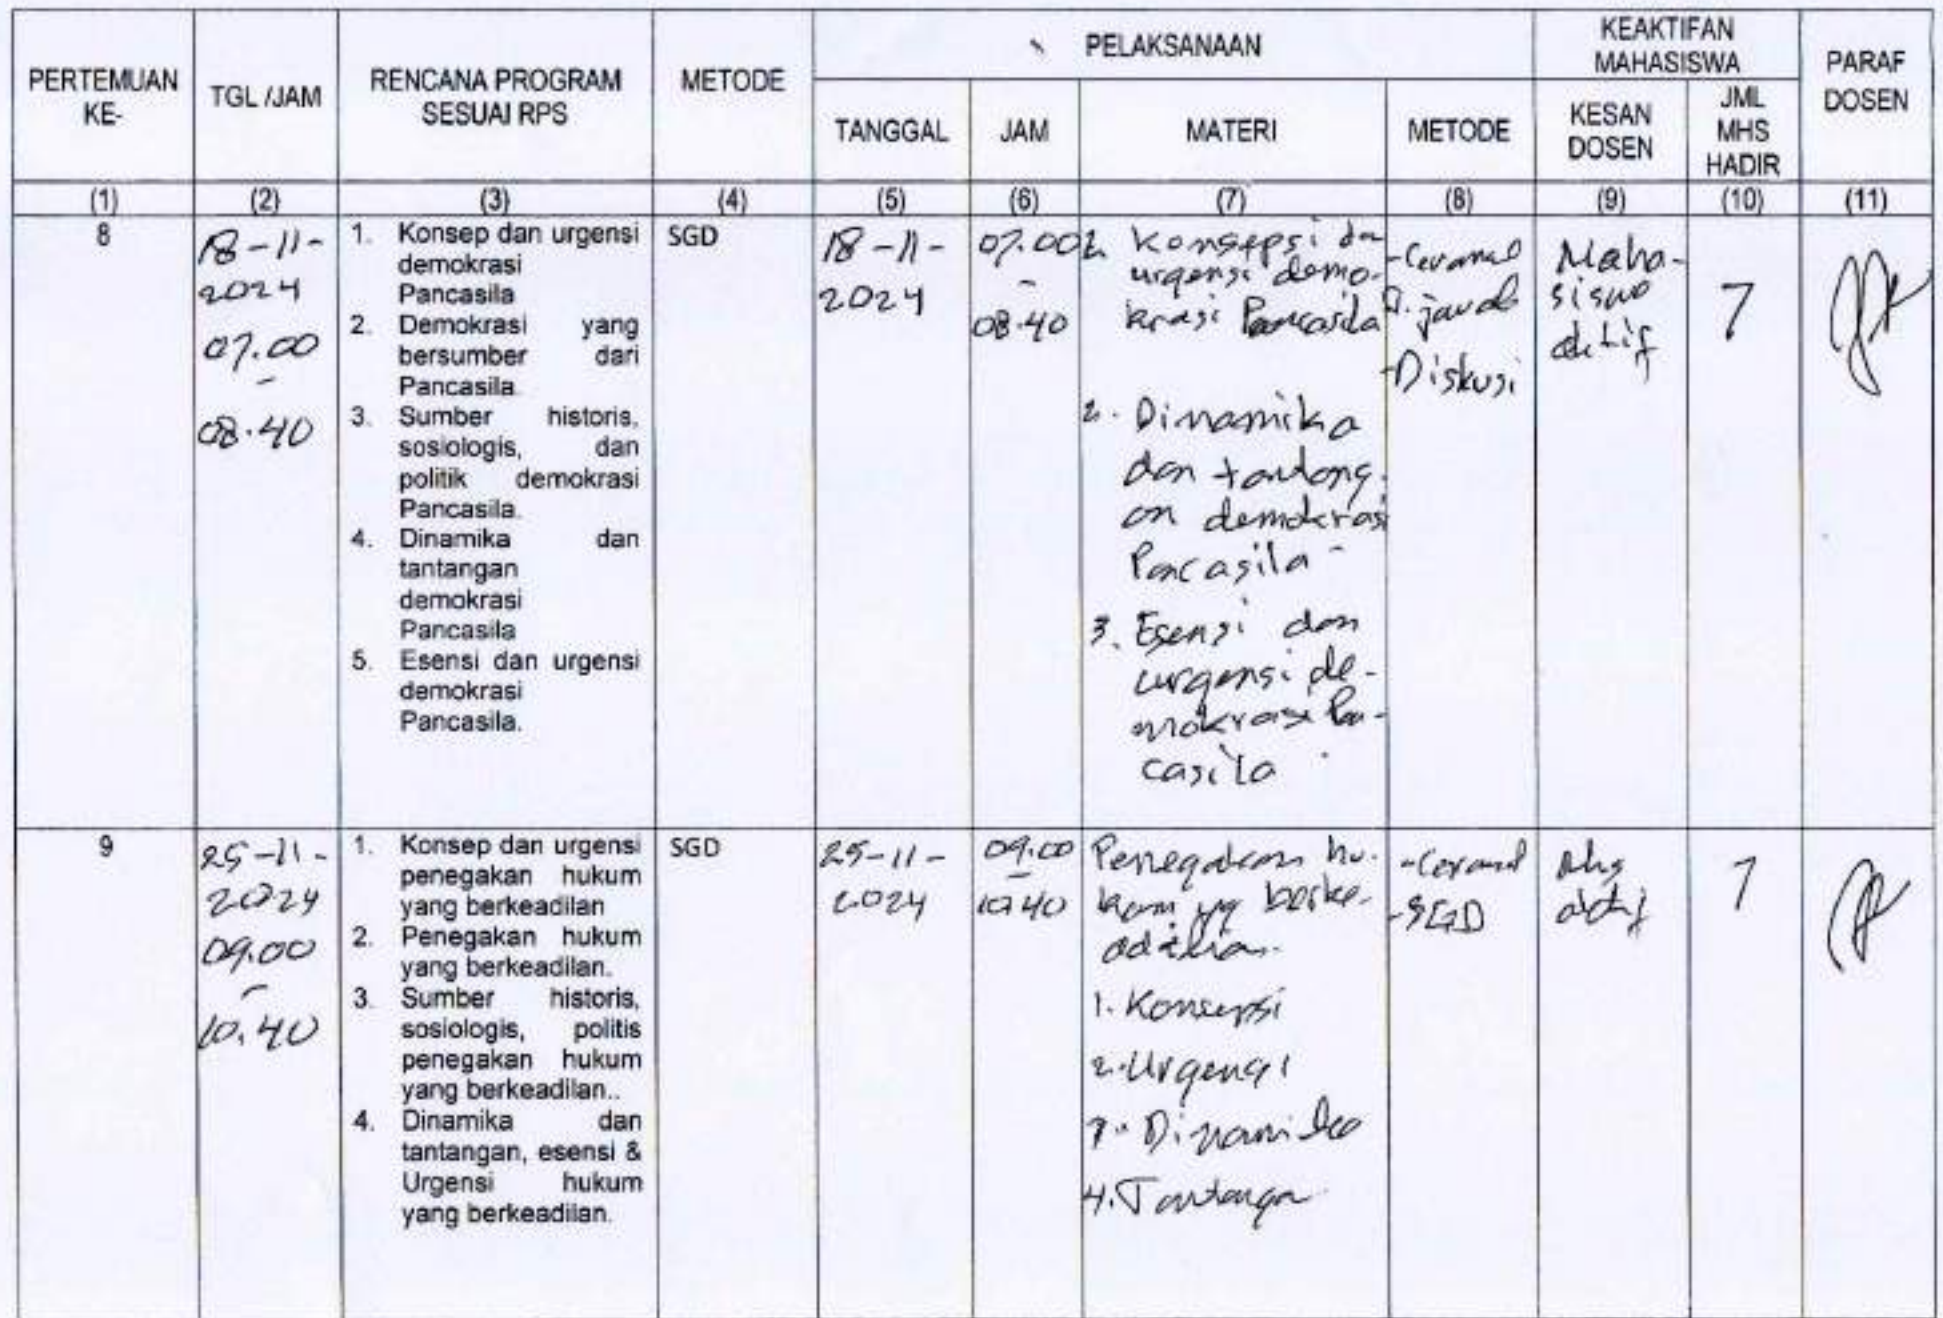 PERTEMUAN KE-
TGL /JAM
RENCANA PROGRAM SESUAI RPS
METODE
PELAKSANAAN
TANGGAL
JAM
MATERI
METODE
KEAKTIFAN MAHASISWA
KESAN DOSEN
JML MHS HADIR
PARAF DOSEN
(1) (2) (3) (4) (5) (6) (7) (8) (9) (10) (11)
8
18-11-
2024
07.00
-
08.40
1. Konsep dan urgensi
demokrasi
Pancasila
2. Demokrasi yang
bersumber dari
Pancasila.
3. Sumber historis,
sosiologis, dan
politik demokrasi
Pancasila.
4. Dinamika dan
tantangan
demokrasi
Pancasila
5. Esensi dan urgensi
demokrasi
Pancasila.
SGD
18-11-
2024
07.00
-
08.40
Konsepsi dan
urgensi demo-
krasi Pancasila
2. Dinamika
dan tantang-
an demokrasi
Pancasila
3. Esensi dan
urgensi de-
mokrasi Pan-
casila
-Ceramah
jawab
-Diskusi
Maha-
siswa
aktif
7
9
25-11-
2024
09.00
-
10.40
1. Konsep dan urgensi
penegakan hukum
yang berkeadilan
2. Penegakan hukum
yang berkeadilan.
3. Sumber historis,
sosiologis, politis
penegakan hukum
yang berkeadilan..
4. Dinamika dan
tantangan, esensi &
Urgensi hukum
yang berkeadilan.
SGD
25-11-
2024
09.00
-
10.40
Penegakan hu-
kum yg berke-
adilan.
1. Konsepsi
2. Urgensi
3. Dinamika
4. Tantangan
-Ceramah
-SGD
Mhs
aktif
7